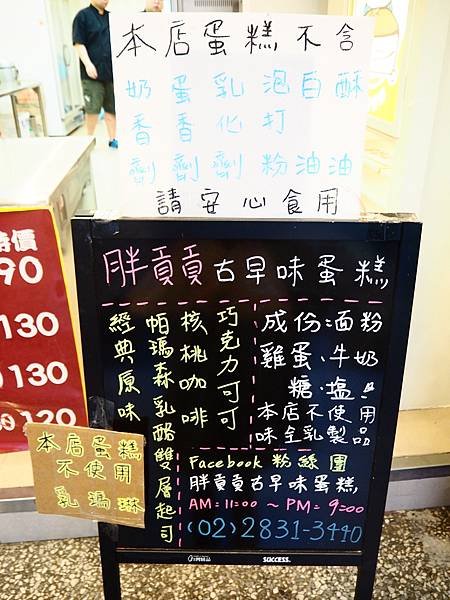 本店蛋糕不含
奶香劑
蛋香劑
乳化劑
泡打粉
白油
酥油
請安心食用
胖貢貢古早味蛋糕
巧克力可可
核桃咖啡
帕瑪森乳酪雙層起司
經典原味
成份:面粉
雞蛋、牛奶
糖、塩!!
本店不使用
味全乳製品
Facebook 粉絲團
胖貢貢古早味蛋糕,
AM=11:00 ~ PM=9:00
(02)2831-3440
SUCCESS
本店蛋糕
不使用
乳瑪琳
特價
90
130
130
120